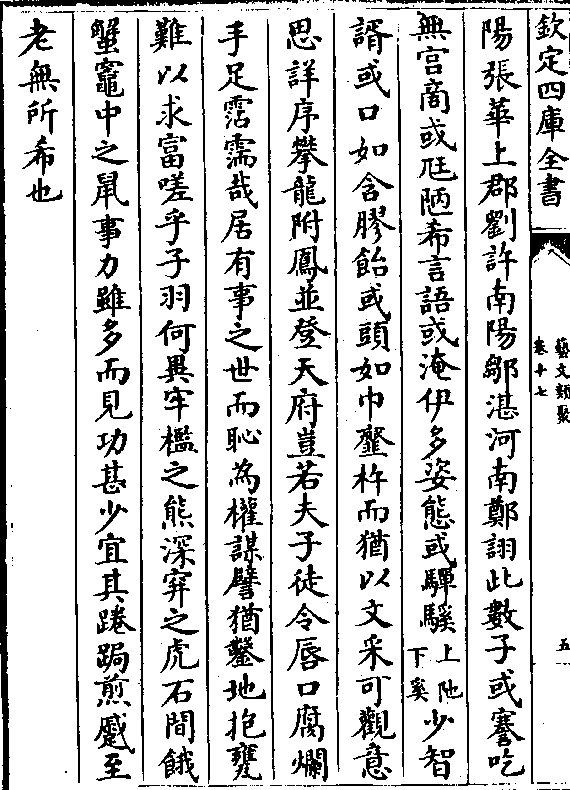 欽定四庫全書
藝文類聚
卷十七
五
陽張華上郡劉許南陽鄒湛河南鄭詡此數子或謇吃
無宫商或尫陋希言語或淹伊多姿態或驒騱上陁下奚少智
諝或口如含膠飴或頭如巾虀杵而猶以文采可觀意
思詳序攀龍附鳳並登天府豈若夫子徒令唇口腐爛
手足霑濡哉居有事之世而恥為權謀譬猶鑿地抱甕
難以求富嗟乎子羽何異牢檻之熊深穽之虎石間餓
蟹竈中之鼠事力雖多而見功甚少宜其踡跼煎蹙至
老無所希也